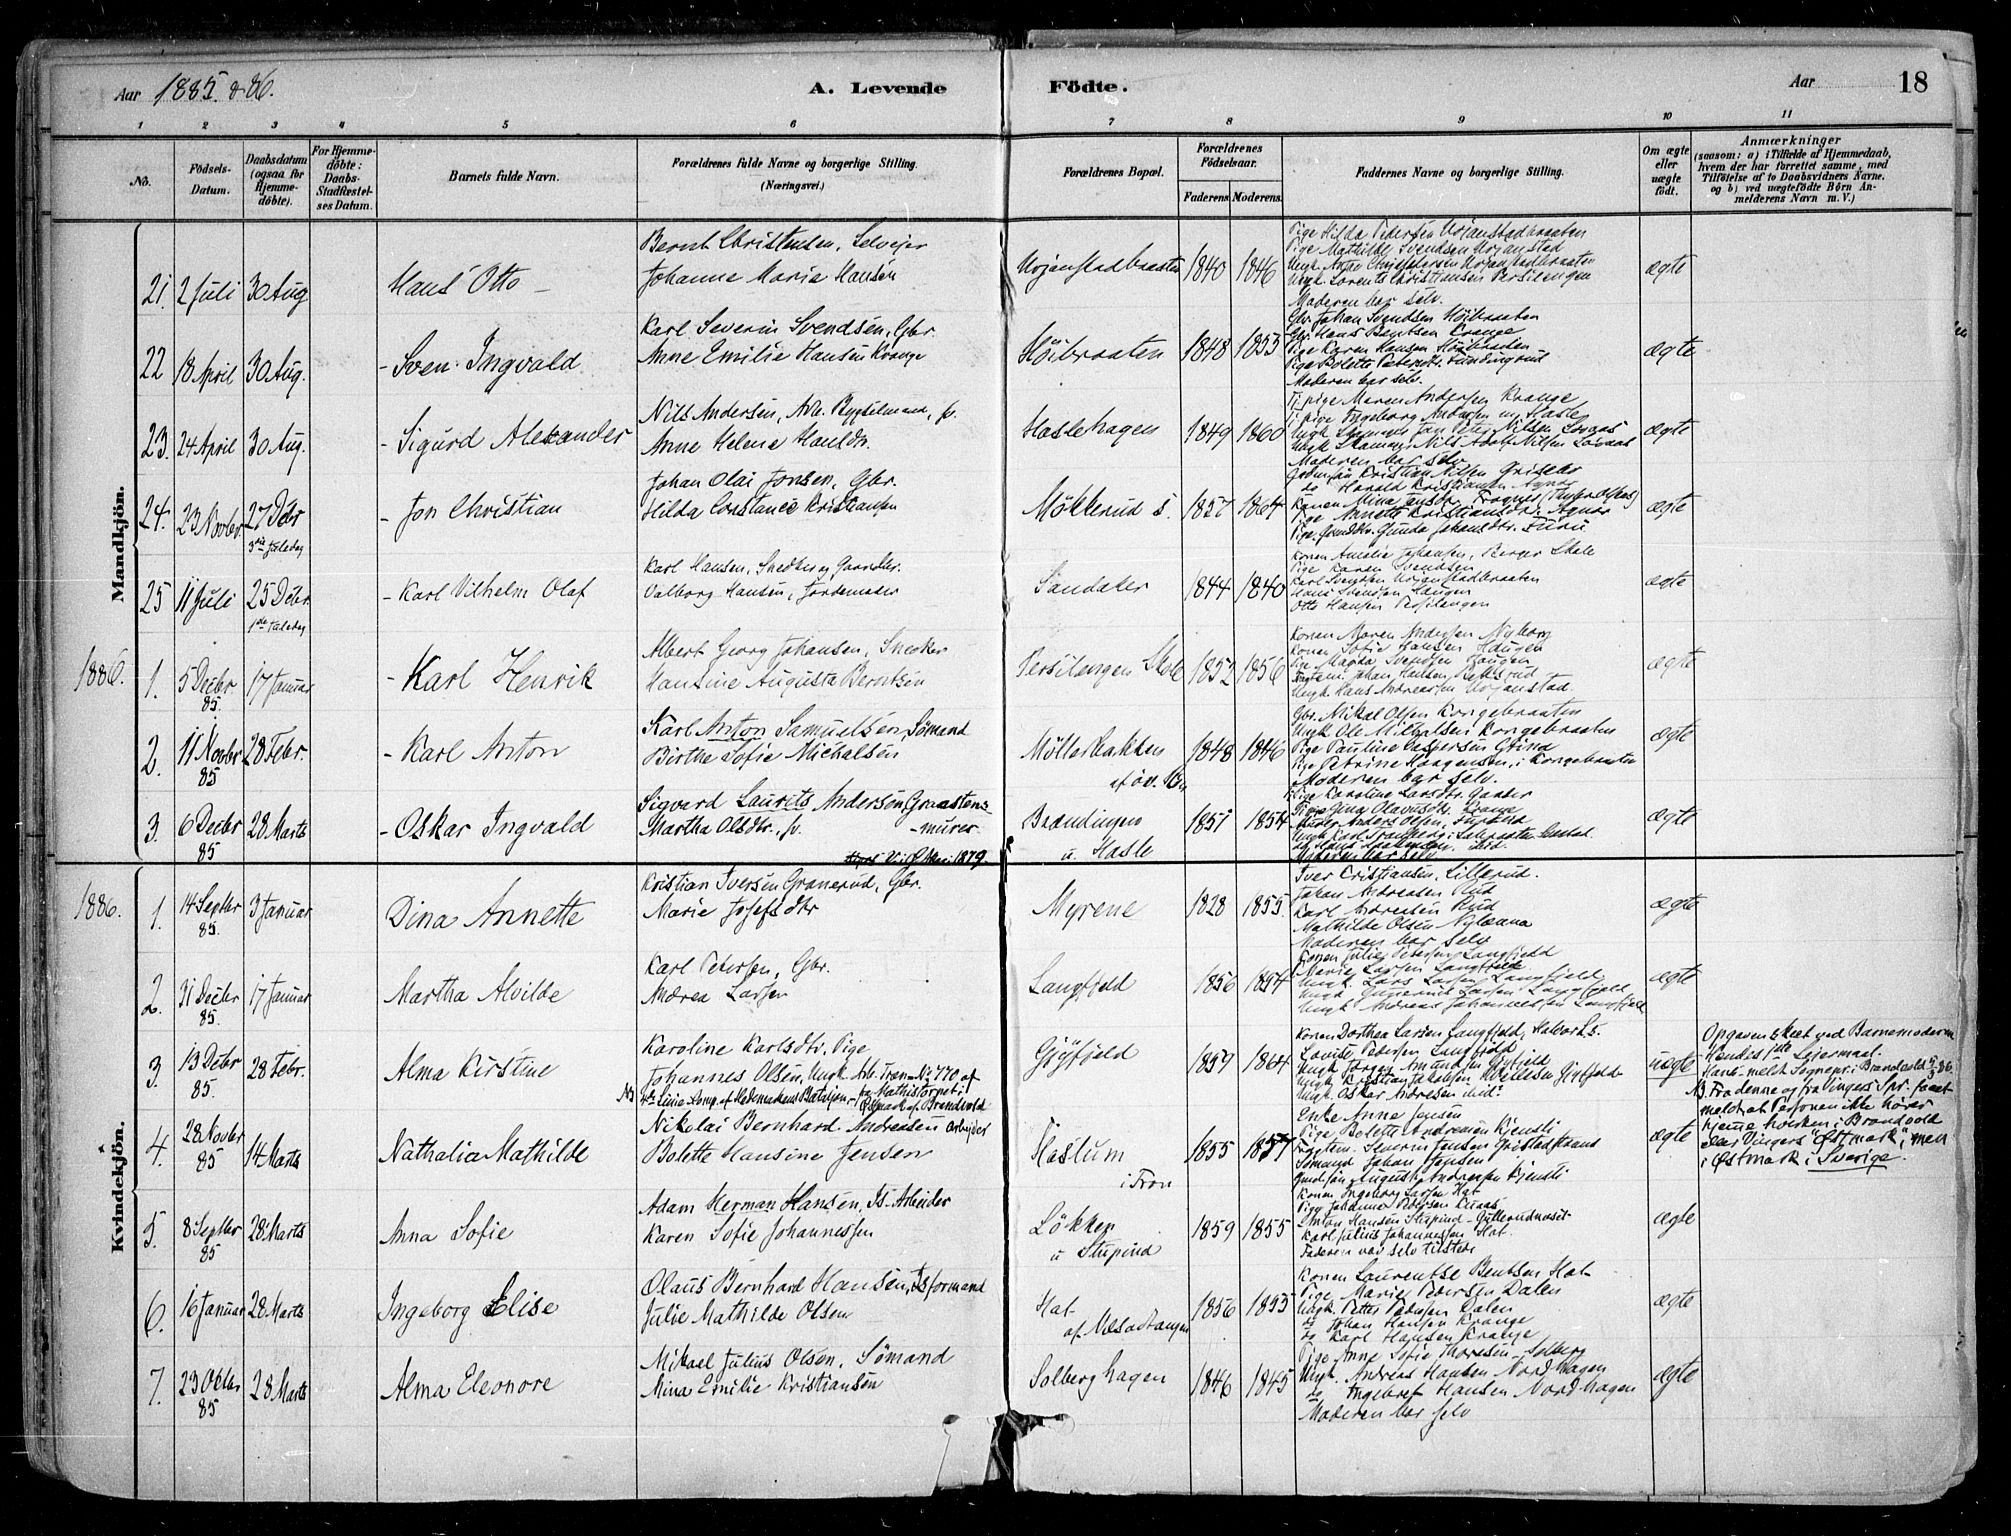 Aar 1885 & 86.
A. Levende Födte.
Aar 18
1 2 3 4 5 6 7 8 9 10 11
No.
Födsels-Datum.
Daabsdatum (ogsaa for Hjemme-döbte).
For Hjemme-döbte: Daabs-Stadfæstel-ses Datum.
Barnets fulde Navn.
Forældrenes fulde Navne og borgerlige Stilling.
(Næringsvei.)
Forældrenes Bopæl.
Forældrenes Födselsaar.
Faderens Moderens.
Faddernes Navne og borgerlige Stilling.
Om ægte eller uægte födt.
Anmærkninger
(saasom: a) i Tilfælde af Hjemmedaab,
hvem der har forrettet samme, med
Tilföielse af to Daabsvidners Navne.
og b) ved uægtefödte Börn An-
melderens Navn m. V.)
Mandkjön.
21. 2 Juli 30 Aug Hans Otto
Bernh Christensen, Selveier
Johanne Marie Hansen
Urjanstadbraaten 1840 1846
Pige Hilda Pedersen Urjanstadbraaten
Pige Mathilde Svendsen Urjanstad
Ungk. Lorents Christiansen Persilengen
Moderen bar selv.
ægte
22 18 April 30 Aug. - Sven Ingvald
Karl Severin Svendsen, Gbr.
Anne Emilie Hansen Krange
Höibraaten 1848 1853
Gbr. Johan Svendsen Höibraaten
Gbr. Hans Bentsen Krange
Pige Karen Hansen Höibraaten
Moderen bar selv.
ægte
23. 24 April 30 Aug. - Sigurd Alexander
Nils Andersen, Arb. Bygselmand, fv.
Anne Helene Hansdtr.
Haslehagen 1849 1860
Tj. pige Maren Andersen Krange
Tj. pige Ingeborg Andersen Hasle
Moderen bar selv
ægte
24. 23 Novbr. 27 Debr 3die Juledag - Jon Christian
Johan Olai Jonsen, Gbr.
Hilda Constance Kristiansen
Mökkerud s. 1857 1864
do Harald Kristiansen Agnor
Pige Annette Kristiansdtr. Agnor
ægte
25 11 Juli 25 Debr 1ste Juledag - Karl Vilhelm Olaf
Karl Hansen, Snedker og Gaardbr.
Valborg Hansen, Jordemoder
Sandaker 1844 1840
Konen Amalie Johansen, Berger Skole
Pige Karen Svendsen
Karl Svendsen Urjanstadbraaten
Hans Svendsen Haugen
Otto Hansen Persilengen
ægte
1886. 1. 5 Decbr 85. 17 Januar - Karl Henrik
Albert Georg Johansen, Snedker
Hansine Augusta Berntsen
Persilengen Skole 1852 1856
Konen Maren Andersen Nyborg
Konen Sofie Hansen Haugen
Pige Magda Svendsen Haugen
Ungk Hans Andreasen Urjanstad.
ægte
2. 11 Novbr 85 28 Febr. - Karl Anton
Karl Anton Samuelsen Sömand
Birthe Sofie Michalsen
Möllerbakken 1848 1846
Gbr. Mikal Olsen Kongebraaten
Ungk Ole Mikalsen Kongebraaten
Pige Pauline Caspersen Grina
Pige Petrine Haagensen, i Kongebraaten
Moderen bar selv.
ægte
3. 6 Decbr 85 28 Marts - Oskar Ingvald
Sigvard Laurits Andersen Graastens-
Martha Olsdtr., fv. -murer
Viet 1879.
Brændingen u. Hasle 1857 1854
Pige Karoline Larsdtr. Gander
Moderen bar selv
ægte
Kvindekjön.
1886. 1. 14 Septbr 85. 3 Januar Dina Annette
Kristian Iversen Granerud, Gbr.
Marie Josefsdtr
Myrene 1828 1855.
Iver Cristiansen, Lillerud.
Johan Andreasen Rud
Karl Andreasen Rud
Mathilde Olsen Nylænna
Moderen bar selv
ægte
2. 31 Decbr 85. 17 Januar Martha Alvilde
Karl Petersen, Gbr.
Andrea Larsen
Langfjeld 1856 1854
Konen Julie Petersen Langfjeld
Marie Larsen Langfjeld
Ungk. Lars Larsen Langfjeld
Ungk Gunerius Larsen Langfjeld
Ungk Andreas Johannessen Langfjeld
ægte
3. 13 Decbr 85. 28 Febr. Alma Kirstine
Karoline Karlsdtr, Pige
Johannes Olsen, Ungk. Arb. No 770 af
Östmark af Brandvold
Gjöifjeld 1859 1864
Konen Dorthea Larsen Langfjeld, Halvorsh.
Lovise Pedersen Langfjeld
Ungk Oskar Andresen ibid:
uægte
Opgaven skeet ved Barnemoderen
Hendes 1ste Leiermaal.
NB. Fra denne og fra Vingers Spr. frem
meldt at Personen ikke hörer
hjemme hverken i Brandvold
eller Vingers "Östmark", men
i Östmark i Sverige.
4. 28 Novbr 85 14 Marts Nathalia Mathilde
Nikolai Bernhard Andreasen Arbejder
Bolette Hansine Jensen
Haslum i Fron 1855 1857
Enke Anne Jensen
Pige Bolette Andreasen Kjensli
Sömand Johan Jensen
August Andreasen Kjensli
ægte
5. 8 Septbr 85 28 Marts Anna Sofie
Adam Herman Hansen, Is-Arbeider
Karen Sofie Johannessen
Lökken u Stupind 1859 1855
Konen Ingeborg Larsen Hat
Pige Johanne Pedersen Knaas
Anton Hansen Stupind
Karl Julius Johannessen Hat.
Faderen var selv tilstede
ægte
6. 16 Januar 28 Marts Ingeborg Elise
Olaus Bernhard Hansen, Isformand
Julie Mathilde Olsen
Hat af Næsodtangen 1856 1853
Konen Laurentse Bentsen Hat
Pige Marie Pedersen Dalen
Ungk. Petter Pedersen Dalen
do Johan Hansen Krange
do Karl Hansen Krange
ægte
7. 23 Oktbr 85 28 Marts Alma Eleonore
Mikael Julius Olsen, Sömand
Mina Emilie Kristiansen
Solberghagen 1846 1845
Pige Anne Sofie Thoresen Solberg
Ungk. Andreas Hansen Nordhagen
do Ingebret Hansen Nordhagen
Moderen bar selv
ægte